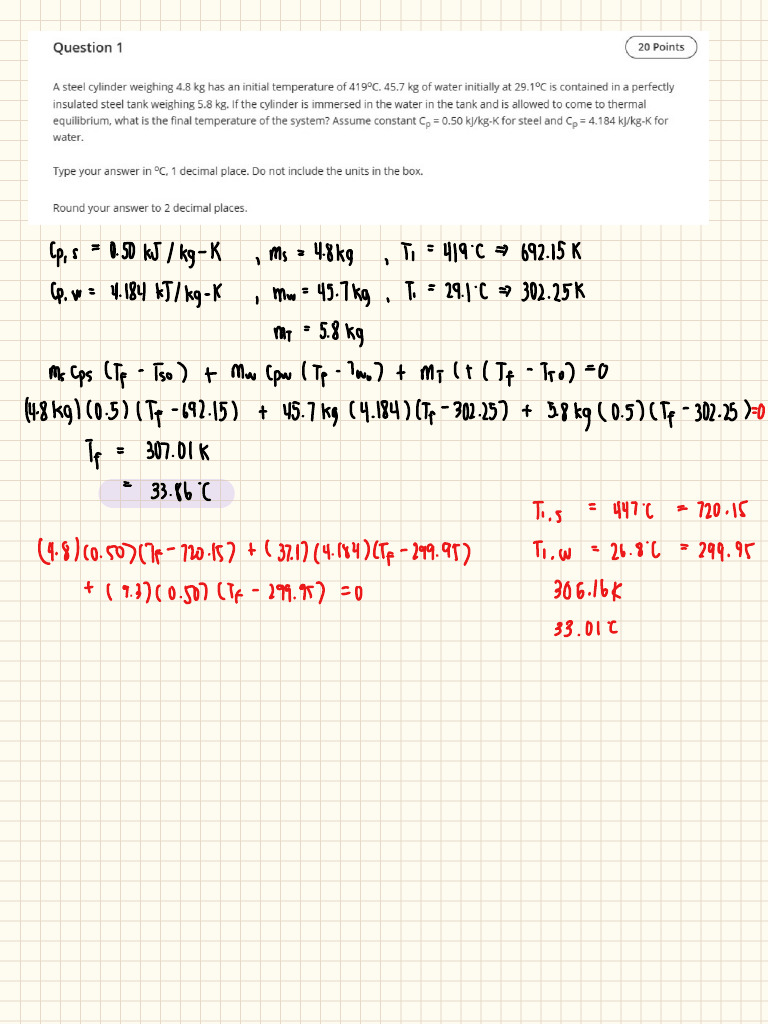 Question 1
20 Points
A steel cylinder weighing 4.8 kg has an initial temperature of 419ºC. 45.7 kg of water initially at 29.1ºC is contained in a perfectly
insulated steel tank weighing 5.8 kg. If the cylinder is immersed in the water in the tank and is allowed to come to thermal
equilibrium, what is the final temperature of the system? Assume constant Cp = 0.50 kJ/kg-K for steel and Cp = 4.184 kJ/kg-K for
water.
Type your answer in ºC, 1 decimal place. Do not include the units in the box.
Round your answer to 2 decimal places.
Cp,s = 0.50 kJ / kg-K , ms = 4.8 kg , T1 = 419°C ⇒ 692.15 K
Cp.w = 4.184 kJ/kg-K , mw = 45.7 kg , T1 = 29.1°C ⇒ 302.25 K
mT = 5.8 kg
ms Cps (Tf - Tso) + mw Cpw (Tf - Two) + mT Ct (Tf - TTo) = 0
(4.8 kg)(0.5)(Tf - 692.15) + 45.7 kg (4.184)(Tf - 302.25) + 5.8 kg (0.5)(Tf - 302.25) = 0
Tf = 307.01 K
= 33.86 °C
T1.s = 447°C = 720.15
(4.8)(0.50)(Tf - 720.15) + (37.1)(4.184)(Tf - 299.95)
T1.w = 26.8°C = 299.95
+ (9.3)(0.50)(Tf - 299.95) = 0
306.16K
33.01 C